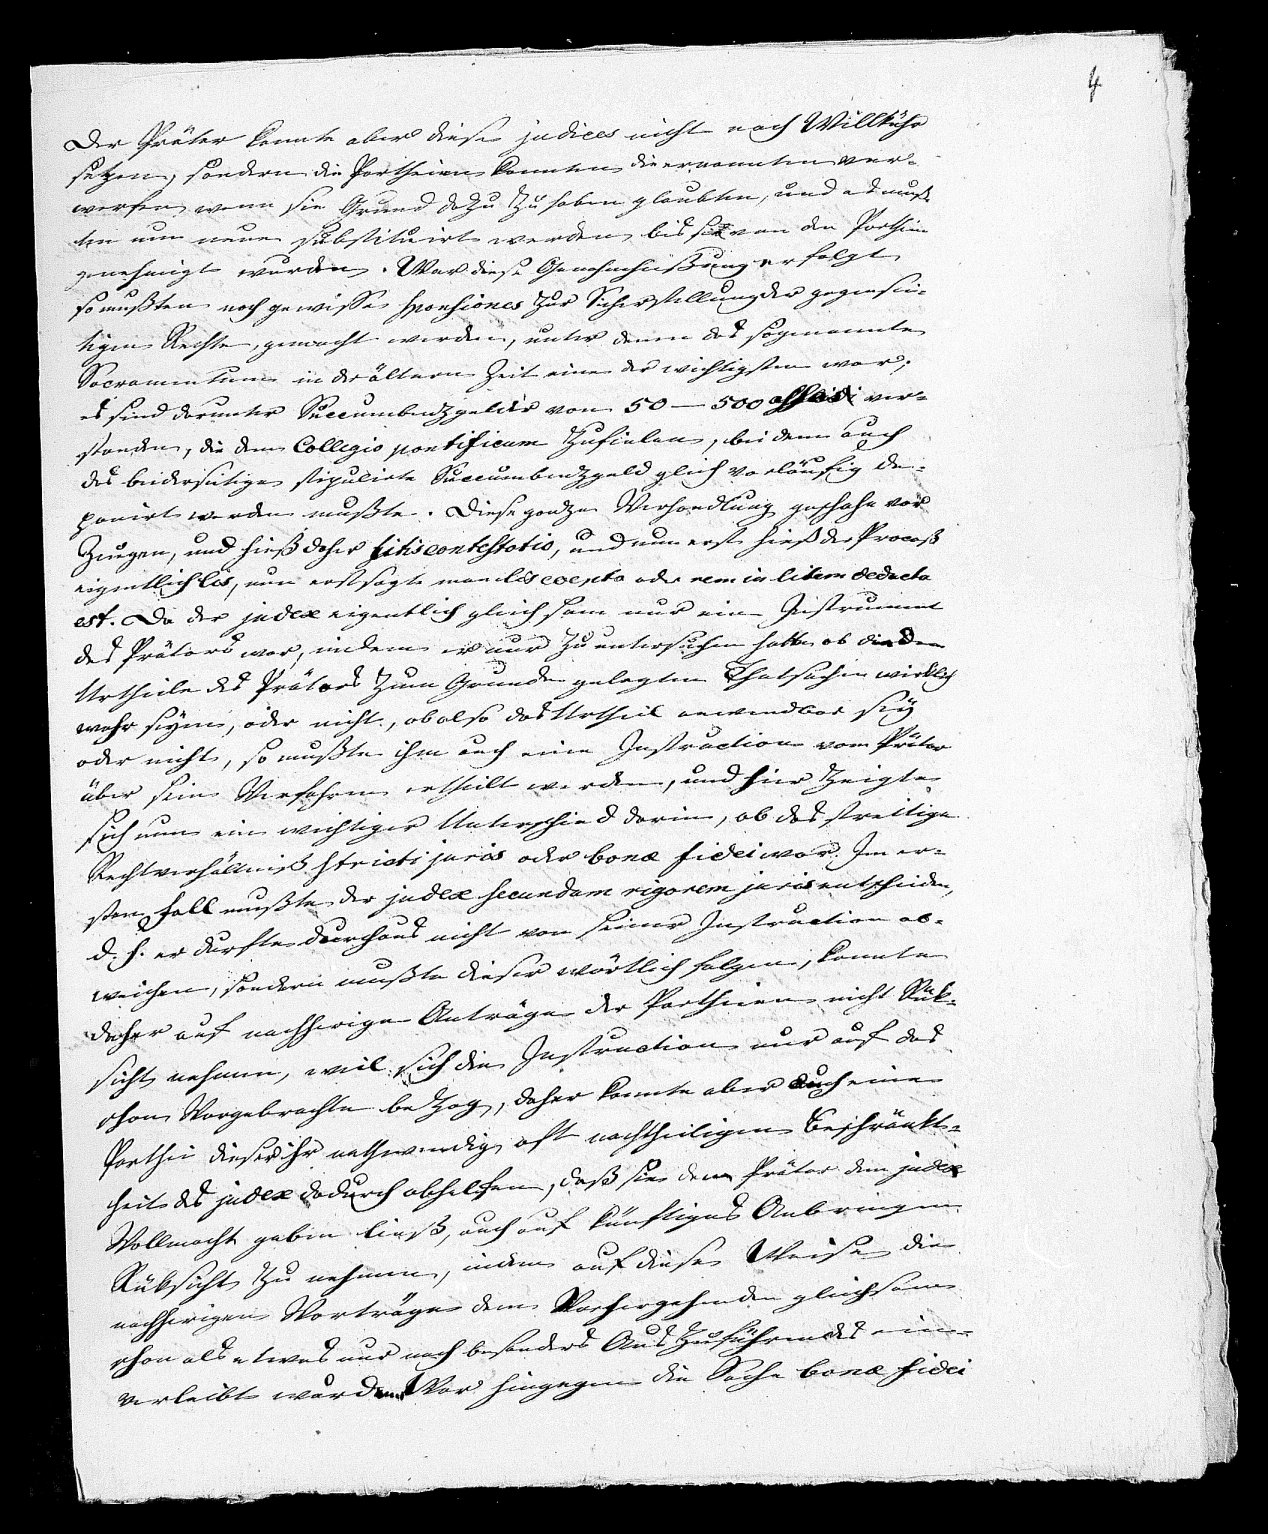 4
Der Prätor konnte aber diese judices nicht nach Willkühr
setzen, sondern die Partheien konnten die ernannten ver-
werfen, wenn sie Grund dazu zu haben glaubten, und es muß-
ten nun neue substituirt werden, bis sie von den Partheien
genehmigt wurden. War diese Genehmigung erfolgt
so mußten noch gewisse sponsiones zur Sicherstellung der gegensei-
tigen Rechte, gemacht werden, unter denen das sogenannte
Sacramentum in der ältern Zeit eine der wichtigsten war;
es sind darunter Succumbenzgelder von 50 — 500 ver-
standen, die dem Collegio pontificum zufielen, bei dem auch
das beiderseitige stipulirte Succumbenzgeld gleich vorläufig de-
ponirt werden mußte. Diese ganze Verhandlung geschahe vor
Zeugen, und hieß daher litis contestatio, und nun erst hieß der Proceß
eigentlich lis, nun erst sagte man lis coepta oder rem in litem deducta
est. Da der judex eigentlich gleichsam nur ein Instrument
des Prätors war, indem er nur zu untersuchen hatte ob die dem
Urtheile des Prätors zum Grunde gelegten Thatsachen wirklich
wahr seyen, oder nicht, ob also das Urtheil anwendbar sey
oder nicht, so mußte ihm auch eine Instruction vom Prätor
über sein Verfahren ertheilt werden, und hier zeigte
sich nun ein wichtiger Unterschied darin, ob das streitige
Rechtverhältniß stricti juris oder bonæ fidei war. Im er-
sten Fall mußte der judex secundum rigorem juris entscheiden,
d. h. er durfte durchaus nicht von seiner Instruction ab-
weichen, sondern mußte dieser wörtlich folgen, konnte
daher auf nachherige Anträge der Partheien nicht Rük-
sicht nehmen, weil sich die Instruction nur auf das
schon Vorgebrachte bezog, daher konnte aber auch eine
Parthei dieser ihr nothwendig oft nachtheiligen Beschränkt-
heit des judex dadurch abhelfen, daß sie dem Prätor dem judex
Vollmacht geben ließ, auch auf künftiges Anbringen
Rüksicht zu nehmen, indem auf diese Weise die
nachherigen Vorträge dem Vorhergehenden gleichsam
schon als etwas nur noch besonders Auszuführendes ein-
verleibt wurden. War hingegen die Sache bonæ fidei